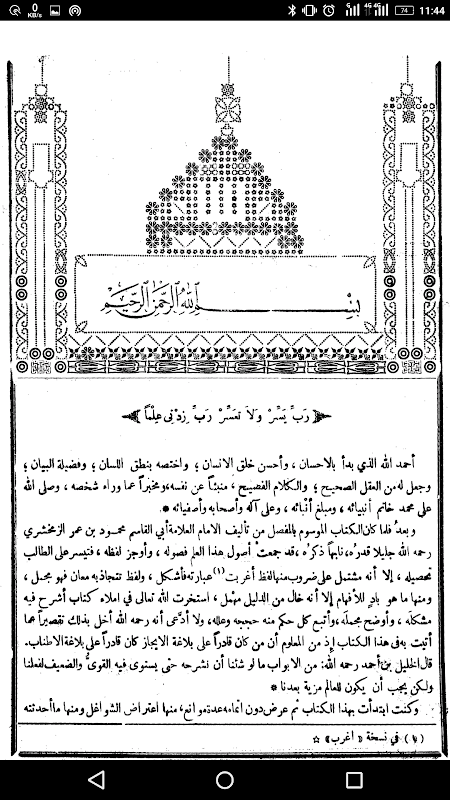 0
KB/s
G 4G 4G 74 11:44
بسم الله الرحمن الرحيم
رَبِّ يَسِّرْ وَلاَ تُعَسِّرْ رَبِّ زِدْنِي عِلْمًا
أحمد الله الذي بدأ بالاحسان ، وأحسن خلق الانسان ؛ واختصه بنطق اللسان ؛ وفضيلة البيان ؛
وجعل له من العقل الصحيح ؛ والكلام الفصيح ، منبئاً عن نفسه، ومخبراً عما وراء شخصه ، وصلى الله
على محمد خاتم أنبيائه ، ومبلغ أنبائه ، وعلى آله وأصحابه وأصفيائه *
وبعدُ فلما كان الكتاب الموسوم بالمفصل من تأليف الامام العلامة أبي القاسم محمود بن عمر الزمخشري
رحمه الله جليلا قدرُه، نابهاً ذكرُه ، قد جمعتْ أصول هذا العلم فصوله ، وأوجز لفظه ، فتيسر على الطالب
تحصيله ، إلا أنه مشتمل على ضروب منها لفظ أغربت (١) عبارته فأشكل ، ولفظ تتجاذبه معان فهو مجمل ،
ومنها ما هو بادٍ للأفهام إلا أنه خال من الدليل مهمل ، استخرت الله تعالى في املاء كتاب أشرح فيه
مشكله ، وأوضح مجمله، وأتبع كل حكم منه حججه وعلله، ولا أدَّعى أنه رحمه الله أخل بذلك تقصيراً عما
أتيت به في هذا الكتاب إذ من المعلوم أن من كان قادراً على بلاغة الايجاز كان قادراً على بلاغة الاطناب.
قال الخليل بن أحمد رحمه الله: من الابواب ما لو شئنا أن نشرحه حتى يستوى فيه القوىُّ والضعيف لفعلنا
ولكن يجب أن يكون للعالم مزية بعدنا *
وكنت ابتدأت بهذا الكتاب ثم عرض دون اتمامه عدة موانع، منها اعتراض الشواغل ومنها ما أحدثته
(١) في نسخة « اغرب » ☆